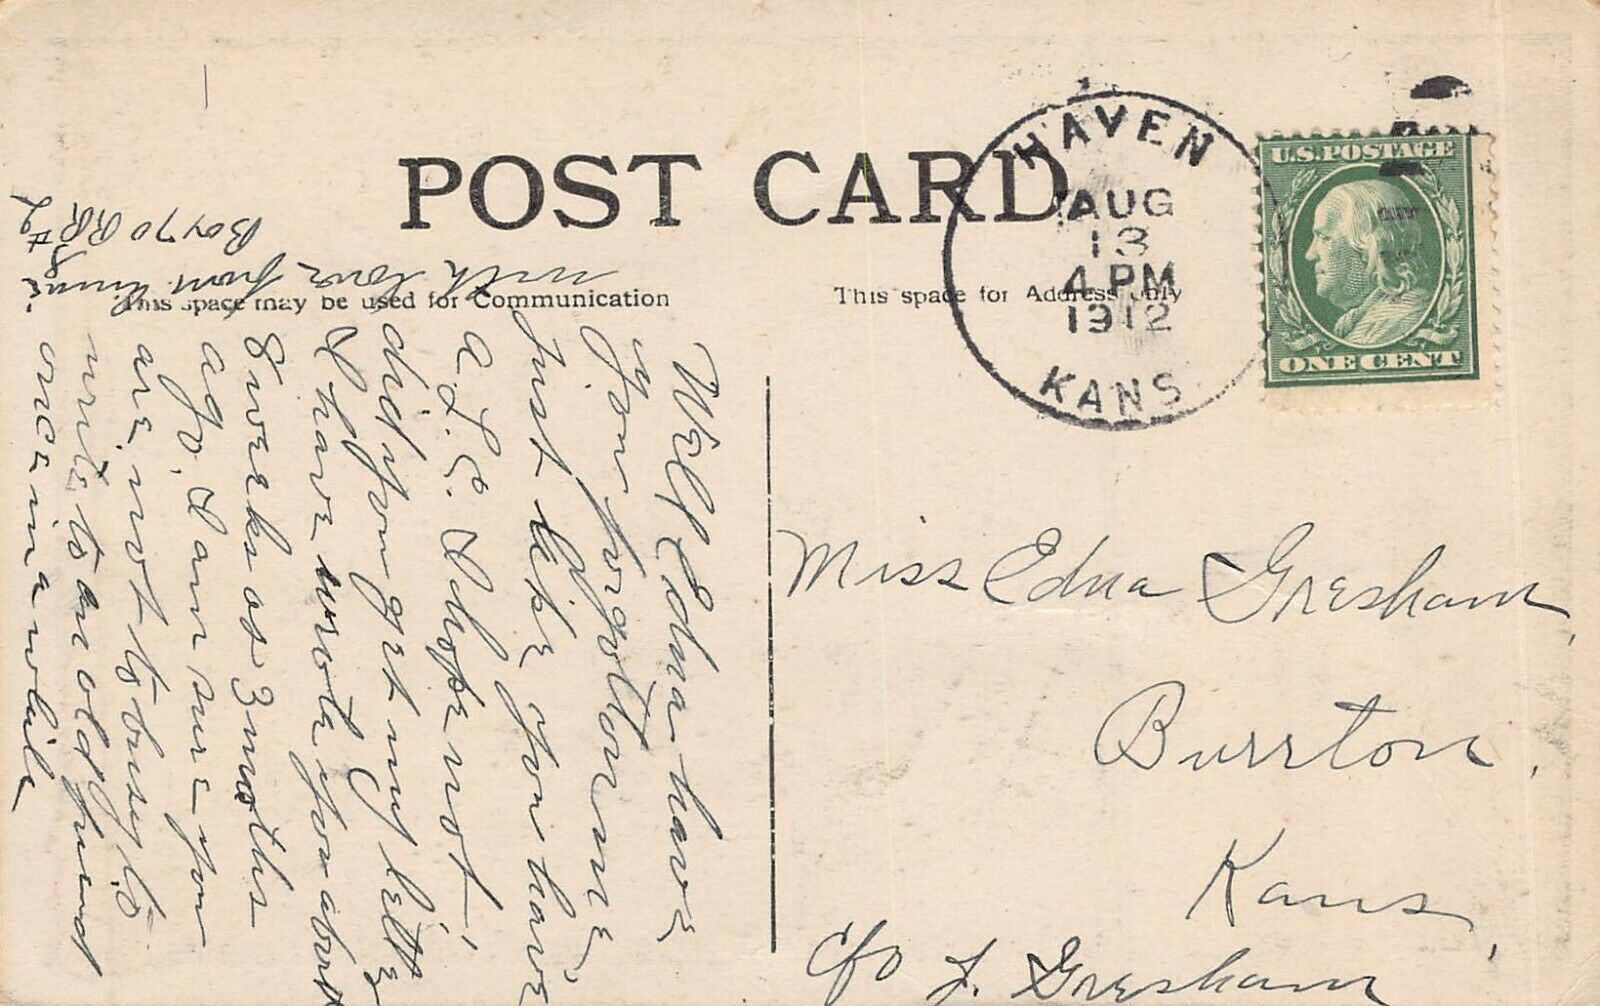 POST CARD
This space may be used for Communication
This space for Address only
HAVEN
AUG
13
4 PM
1912
KANS
U.S. POSTAGE
ONE CENT
Well Edna have
you forgotton me,
Just like you have
a. L. E. I hope not.
did you get my letter
I have wrote you about
8 weeks or 3 months
ago, I am sure you
are not to busy to
write to an old friend
once in a while
with love from
Box 70 RR #2
Miss Edna Gresham,
Burrton,
Kans,
c/o J. Gresham